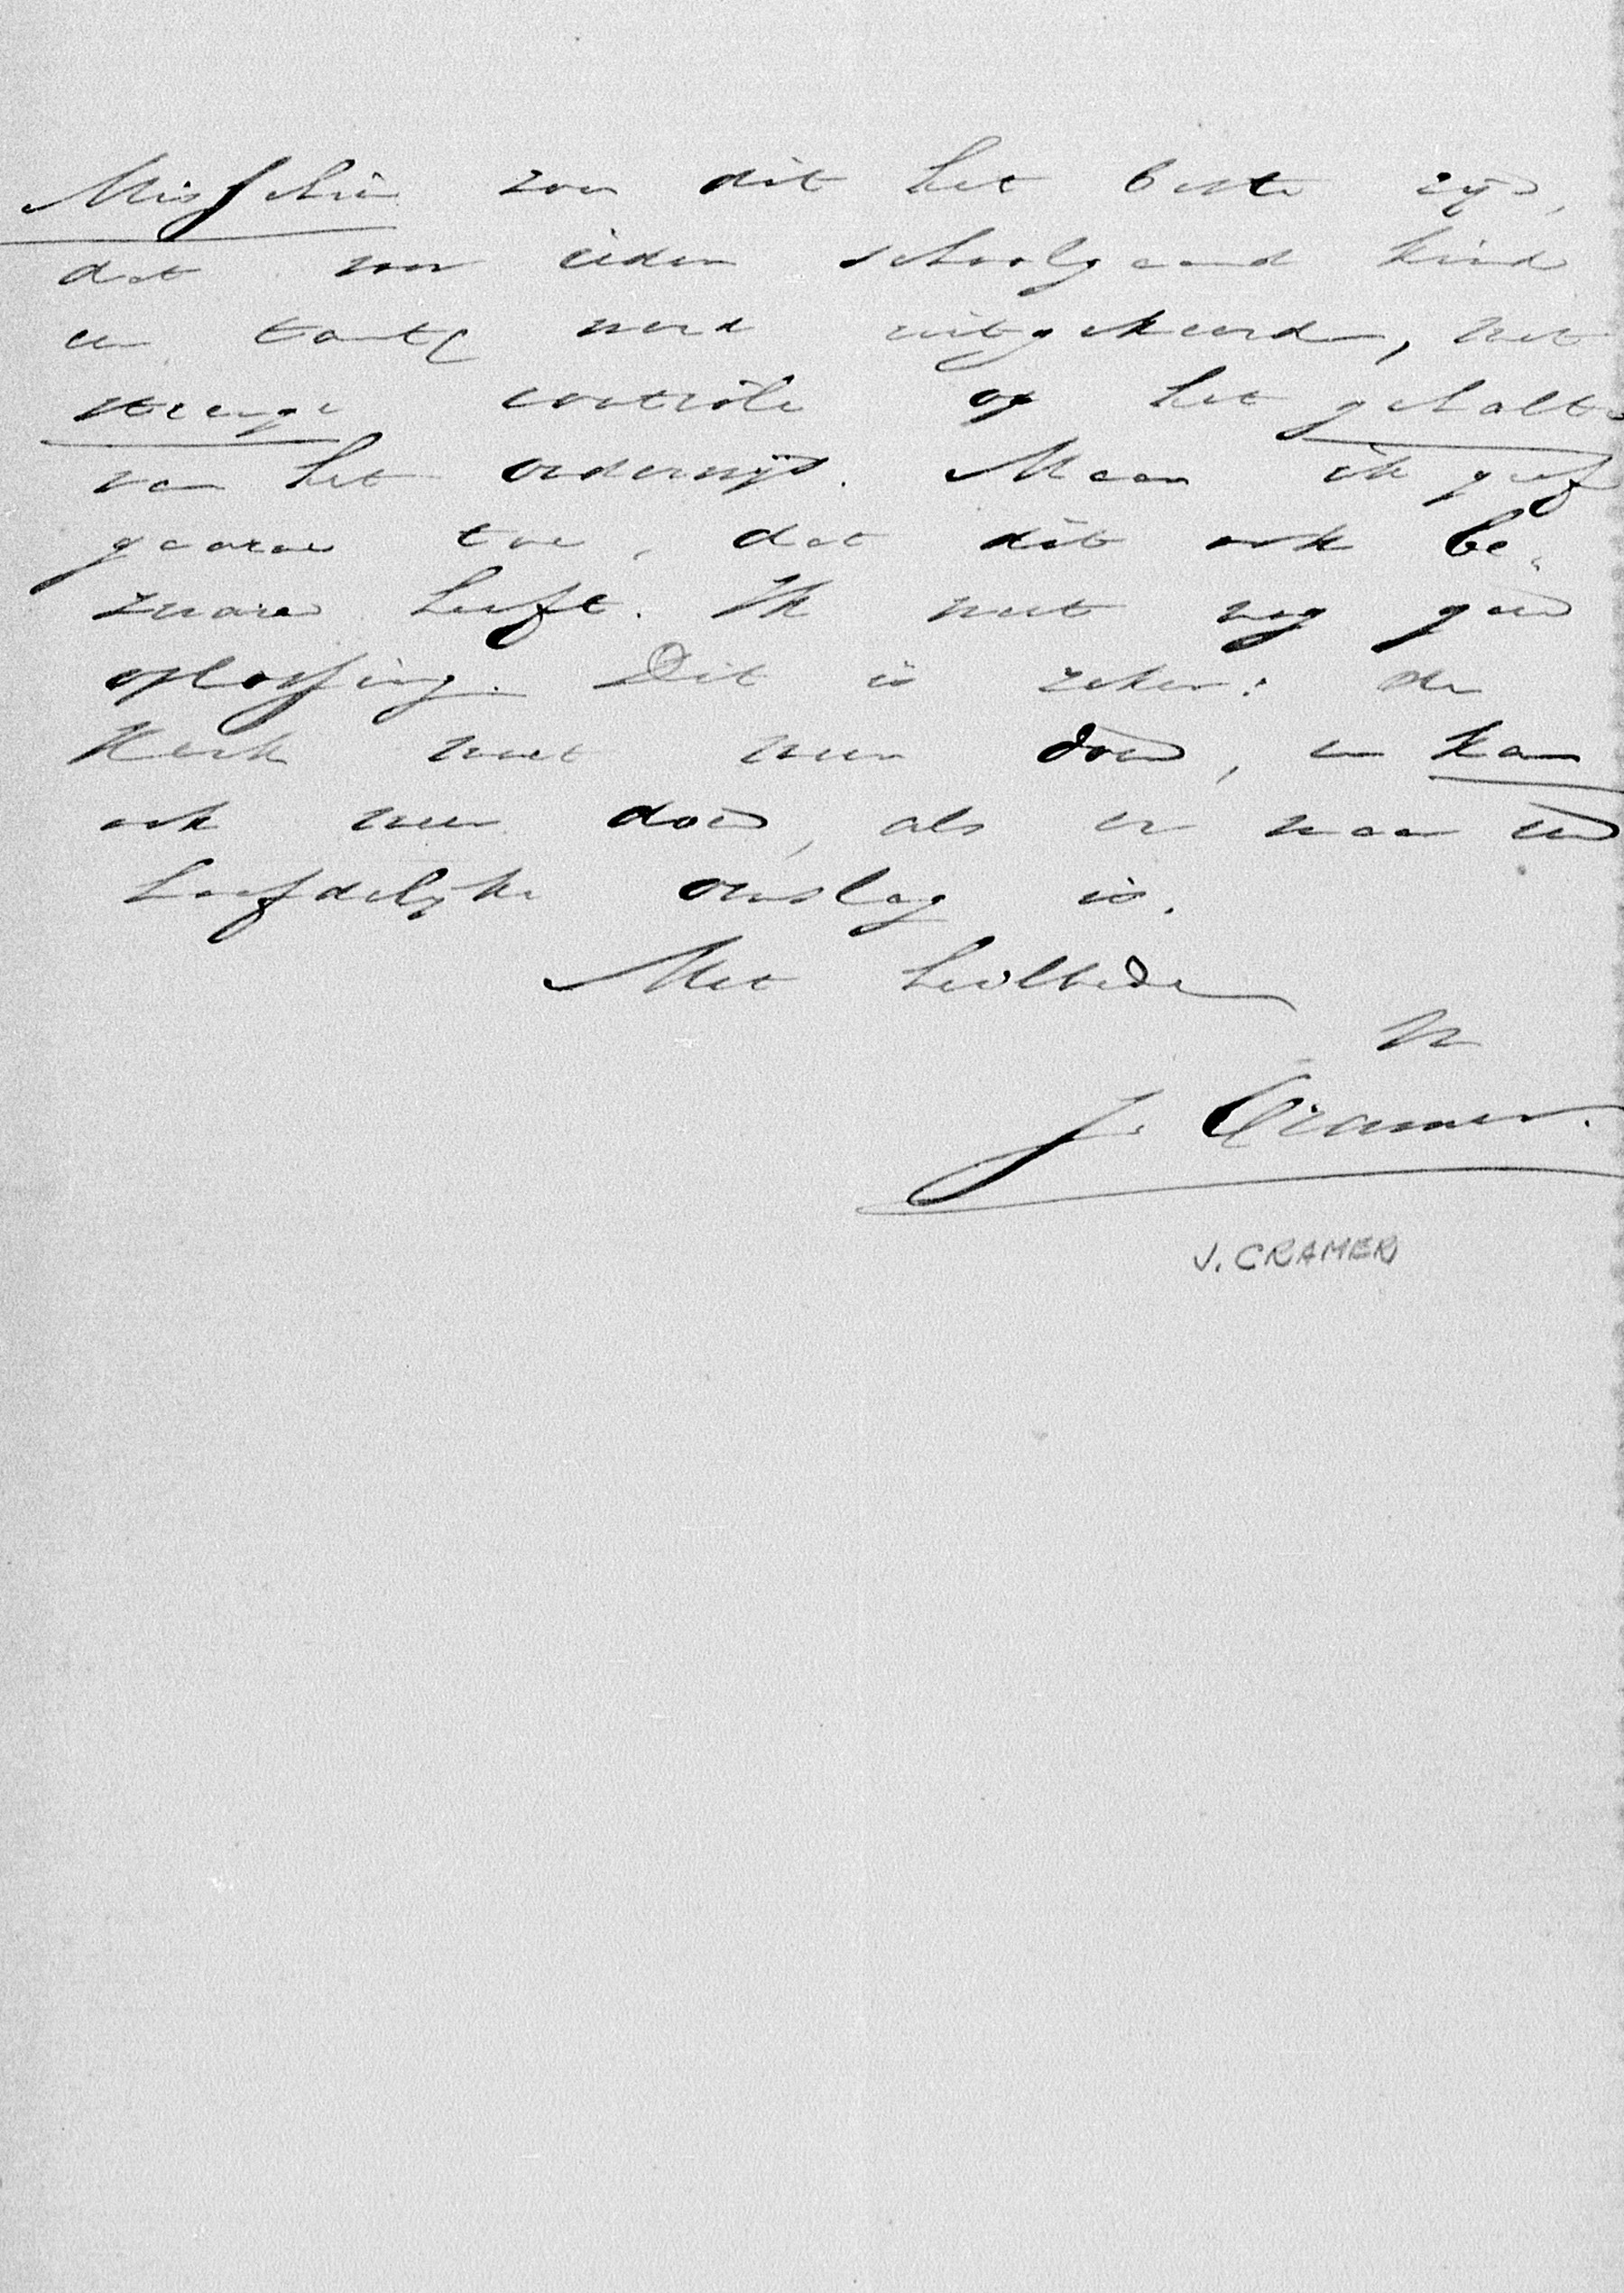 Misschien zou dit het beste zijn,
dat voor ieder schoolgaand kind
een werd uitgekeerd, met
strenge contrôle op het gehalte
van het onderwijs. Maar ik geef
gaarne toe, dat dit ook be-
zwaren heeft. Ik weet nog geen
oplossing. Dit is zeker: de
Kerk moet meer doen, en kan
ook meer doen, als er maar een
hoofdelijke omslag is.
Met heilbede
J. Cramer.
J. CRAMER